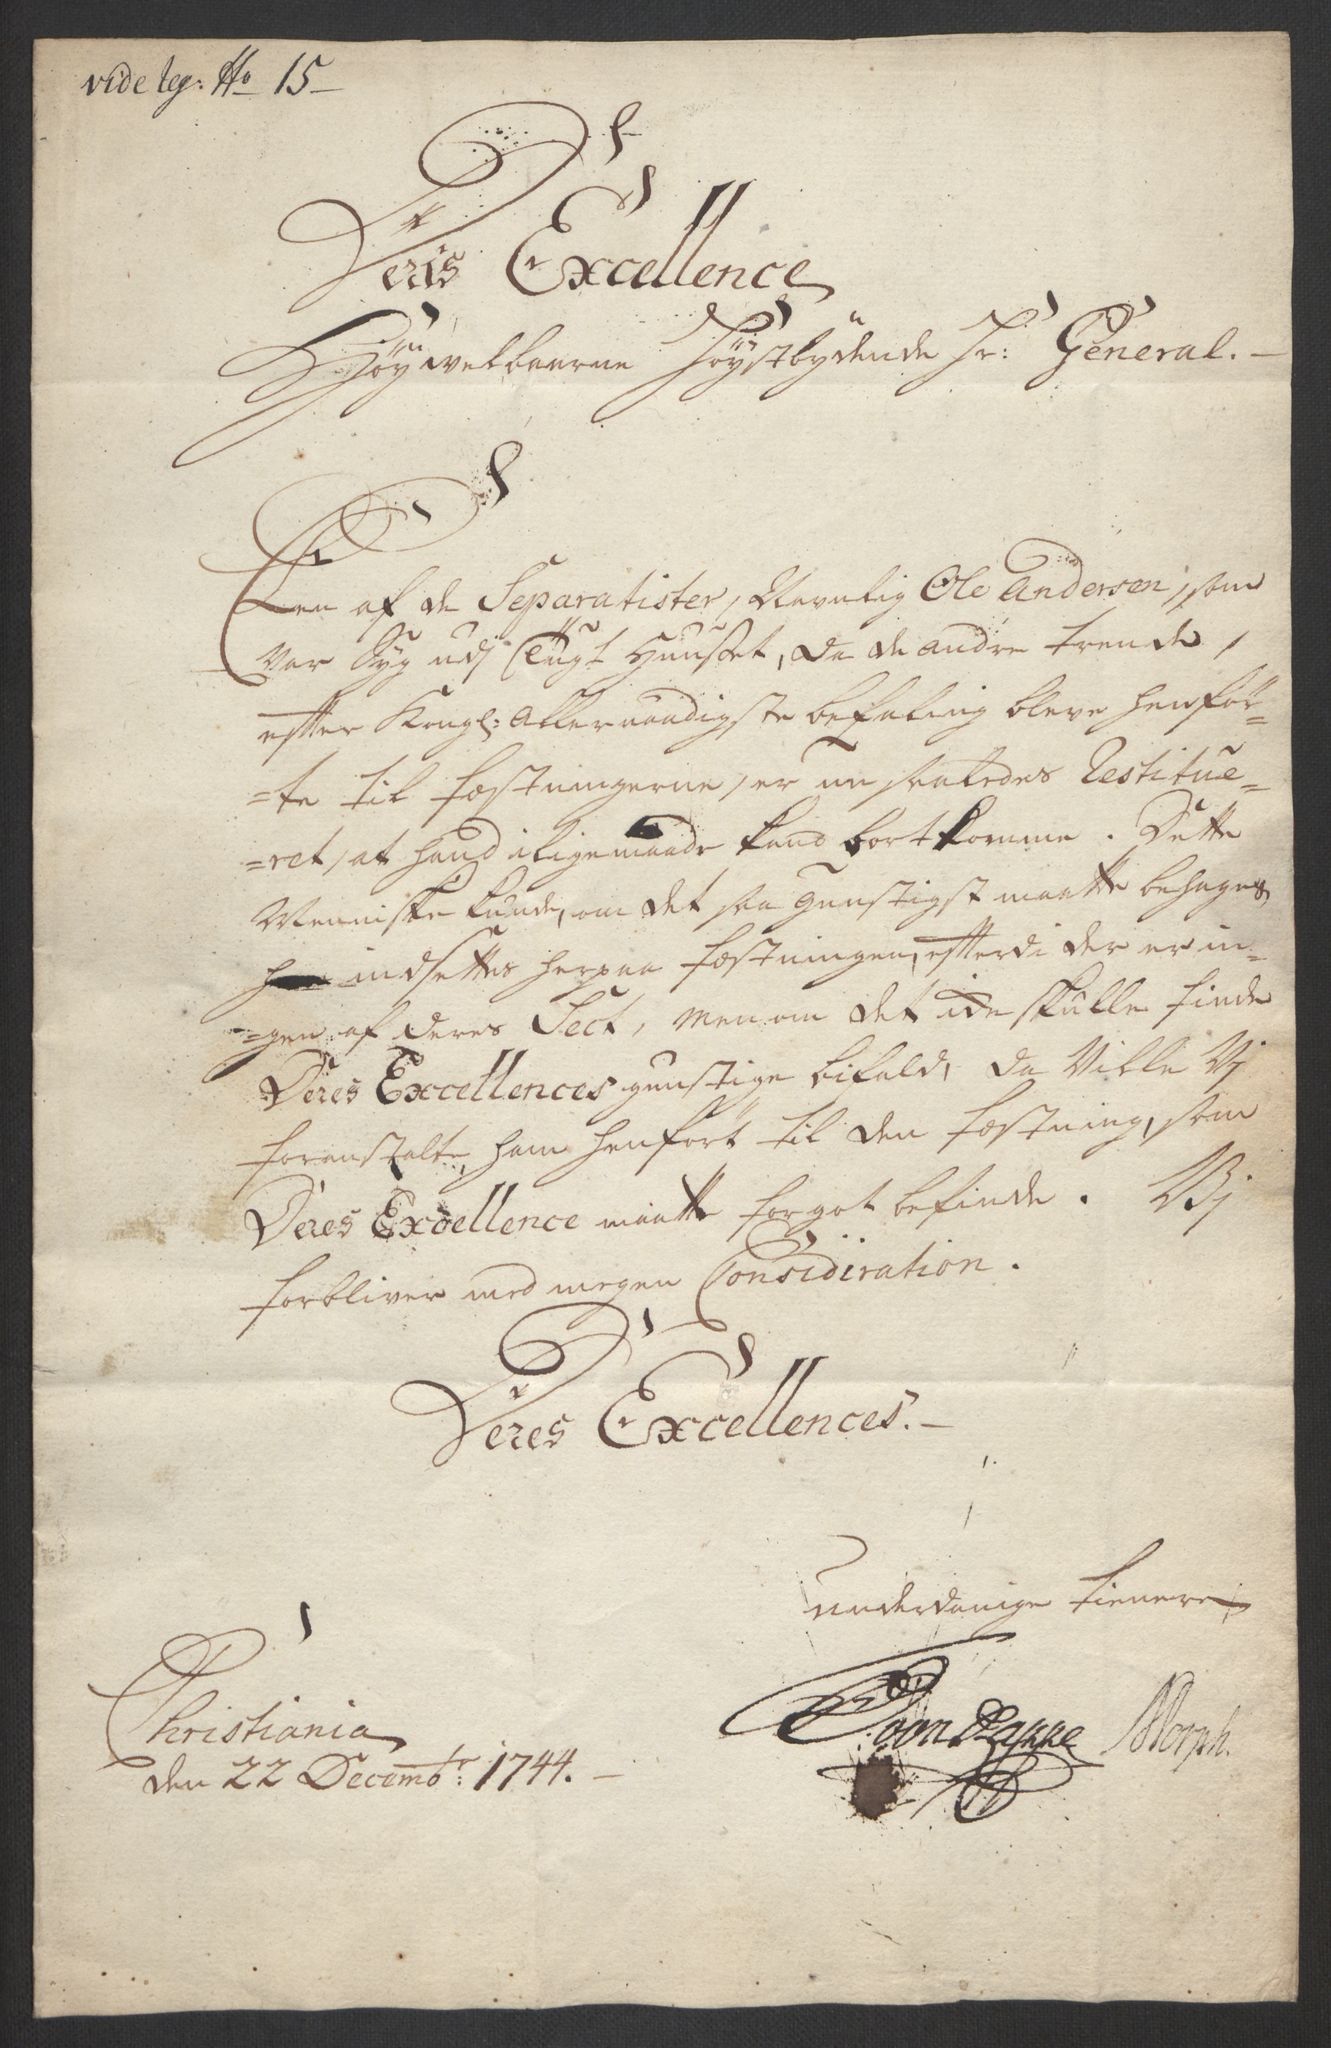 vide leg: No 15
Deris Excellence
Høyvelbaarne Høystbydende Hr: General.
Een af de Separatister, Navnlig Ole Andersen, som
Var Syg udj Tugt Huuset, da de andre trende,
efter Kongl: Allernaadigste befaling bleve henfør-
=te til fæstningerne, er nu saaledes Restitue-
=ret, at hand iligemaade kand bortkomme. Dette
Menniske kunde, om det saa gunstigst maatte behage,
indsettes herpaa fæstningen, efterdi der er in-
=gen af deres Sect, men om det icke skulle finde
Deres Excellences gunstige bifald, da Ville Vj
foranstalte ham henført til den fæstning, som
Deres Excellence maatte for got befinde. Vj
forbliver med megen Considiration.
Deres Excellences.
underdanige tienere
Christiania
den 22 Decembr: 1744.
von Rappe